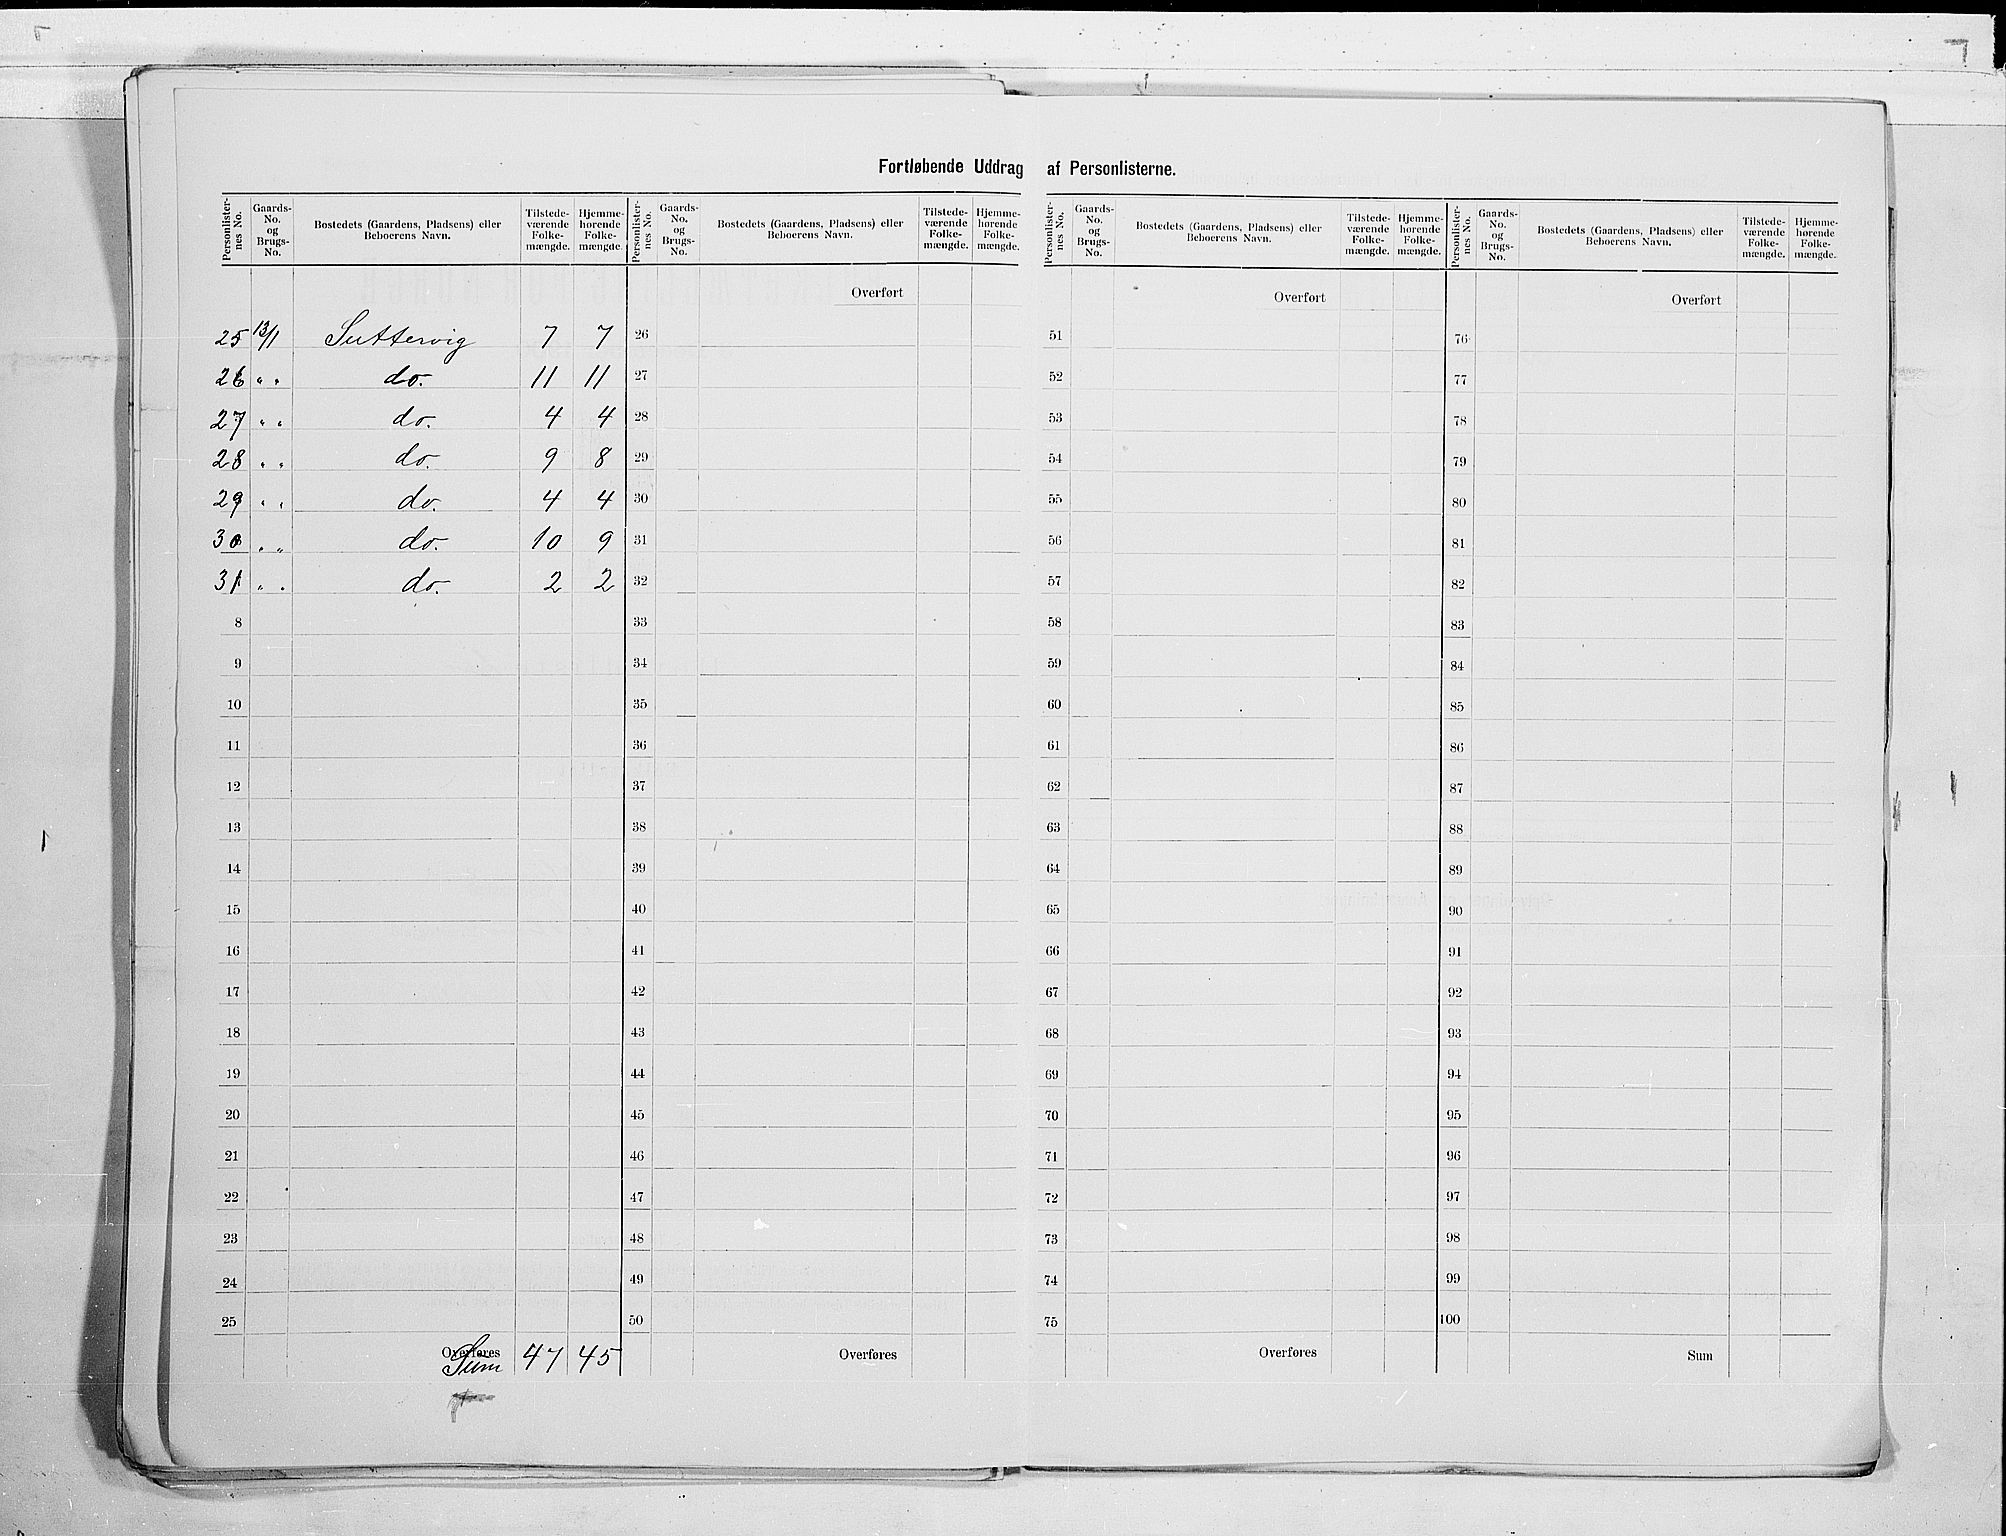 Fortløbende Uddrag af Personlisterne.
Personlister-nes No. Gaards-No. og Brugs-No. Bostedets (Gaardens, Pladsens) eller Beboerens Navn. Tilstede-værende Folke-mængde. Hjemme-hørende Folke-mængde.
Personlister-nes No. Gaards-No. og Brugs-No. Bostedets (Gaardens, Pladsens) eller Beboerens Navn. Tilstede-værende Folke-mængde. Hjemme-hørende Folke-mængde.
Personlister-nes No. Gaards-No. og Brugs-No. Bostedets (Gaardens, Pladsens) eller Beboerens Navn. Tilstede-værende Folke-mængde. Hjemme-hørende Folke-mængde.
Personlister-nes No. Gaards-No. og Brugs-No. Bostedets (Gaardens, Pladsens) eller Beboerens Navn. Tilstede-værende Folke-mængde. Hjemme-hørende Folke-mængde.
Overført Overført Overført
25 13/1 Suttervig 7 7 26 51 76
26 " " do. 11 11 27 52 77
27 " " do. 4 4 28 53 78
28 " " do. 9 8 29 54 79
29 " " do. 4 4 30 55 80
30 " " do. 10 9 31 56 81
31 " " do. 2 2 32 57 82
8 33 58 83
9 34 59 84
10 35 60 85
11 36 61 86
12 37 62 87
13 38 63 88
14 39 64 89
15 40 65 90
16 41 66 91
17 42 67 92
18 43 68 93
19 44 69 94
20 45 70 95
21 46 71 96
22 47 72 97
23 48 73 98
24 49 74 99
25 50 75 100
Overføres Sum 47 45 Overføres Overføres Sum